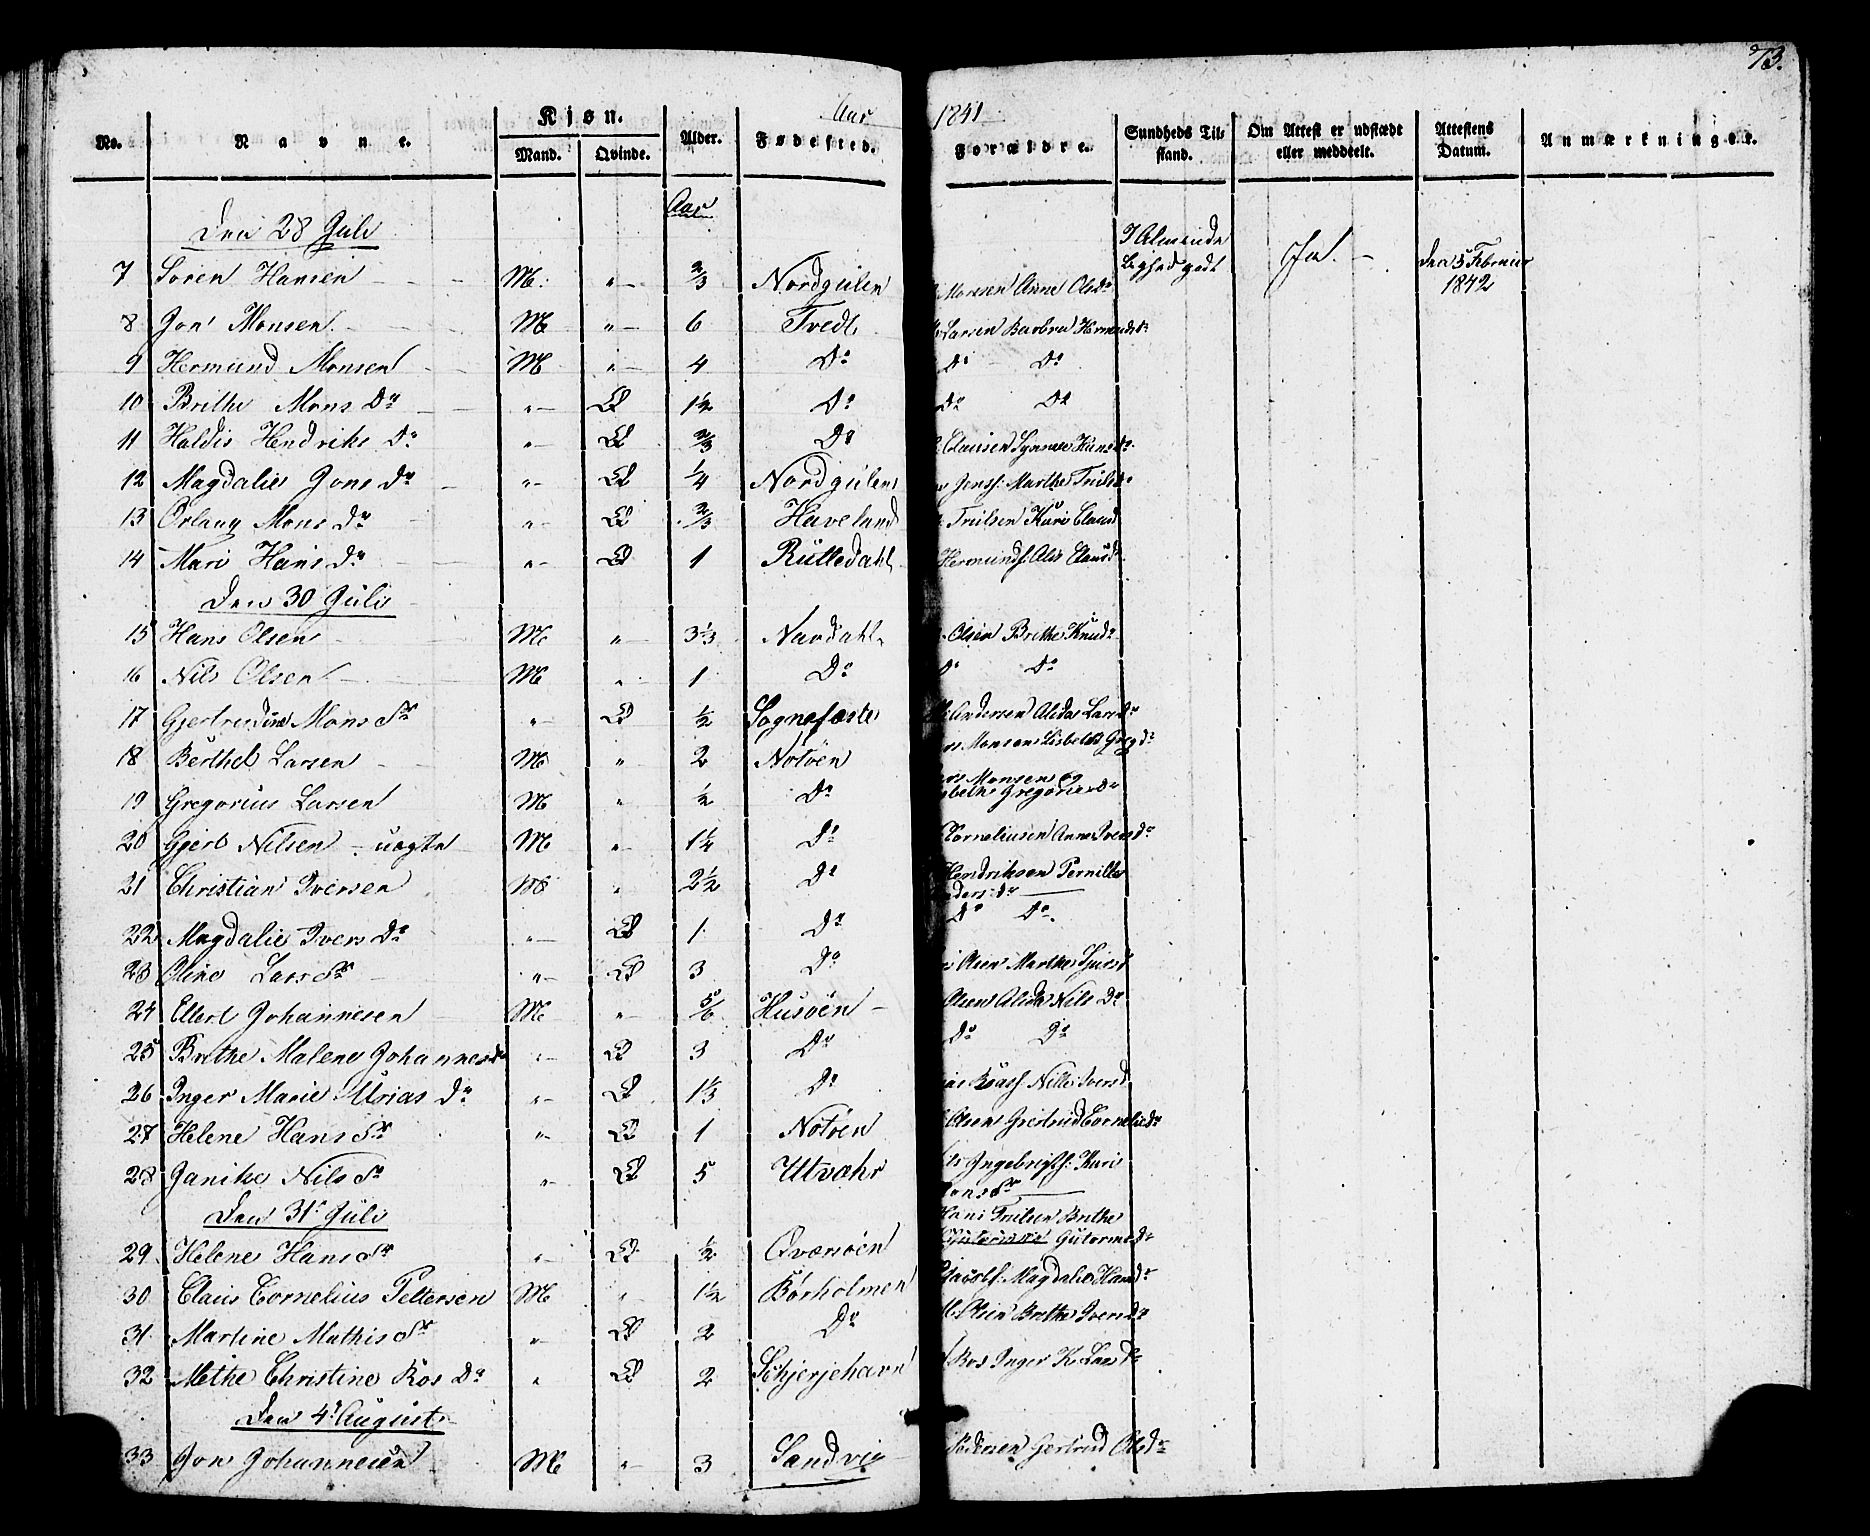 73.
Aar 1841
No. Navne. Kjøn. Mand. Qvinde. Alder. Fødested. Forældre. Sundheds Tilstand. Om Attest er udstædt eller meddeelt. Attestens Datum. Anmærkninger.
Aar
Den 28 Juli
7 Søren Hansen M. " 2/3 Nordgulen Monsen Anne Olsdr I Almindelighed godt Ja. den 5 Februar 1842
8 Jon Monsen M " 6 Tvedt Larsen Barbra Hermundsdr
9 Hermund Monsen M " 4 Do Do Do
10 Brithe Mons Dr " Q 1½ Do Do Do
11 Haldis Hendriks Dr " Q 2/3 Do Clausen Synneve Hans dr
12 Magdalie Jons Dr " Q ¼ Nordgulen Jons: Marthe Truls dr
13 Orlaug Mons Dr " Q 2/3 Haveland Trulsen Kari Claus d
14 Mari Hans Dr " Q 1 Rutledahl Hermunds: Ales Claus d
Den 30 Juli
15 Hans Olsen M " 3⅓ Navdahl Olsen Brithe Knuds
16 Nils Olsen M " 1 Do Do Do
17 Gjertrudine Mons Dr " Q ½ Sognefæste Andersen Alida Lars Dr
18 Berthel Larsen M " 2 Notøen Monsen Lisbeth Greg dr
19 Gregorius Larsen M " ½ Do Monsen og Gregorius dr
20 Gjert Nilsen uægte M " 1¼ Do Corneliusen Anne Ivers dr
21 Christian Iversen M " 2½ Do Hendriksen Pernille Anders dr
22 Magdalie Ivers Dr " Q 1 Do Do Do
23 Oline Lars Dr " Q 3 Do Olsen Marthe
24 Ellert Johannesen M " 5/6 Husøen Olsen Alida Nils Dr
25 Brithe Malene Johannesdr " Q 3 Do Do Do
26 Inger Marie Urias Dr " Q 1⅓ Do Nille Ivers d
27 Helene Hans Dr " Q 1 Notøen Olsen Giertrud Cornelius dr
28 Janike Nils Dr " Q 5 Utvæhr Ingebrigts: Kari Hans Dr
Den 31' Juli
29 Helene Hans Dr " Q ½ Qværnøen Hans Trulsen Brithe Guttorms dr
30 Claus Cornelius Pettersen M " 1½ Børholmen Magdalie Hans dr
31 Martine Mathis Dr " Q 2 Do Olsen Brithe Ivers dr
32 Methe Christine Ros Dr " Q 2 Schjerjehavn Ros Inger K. Lars Dr
Den 4' August
33 Jon Johannesen M " 3 Sandvig Pedersen Gertrud Ols dr